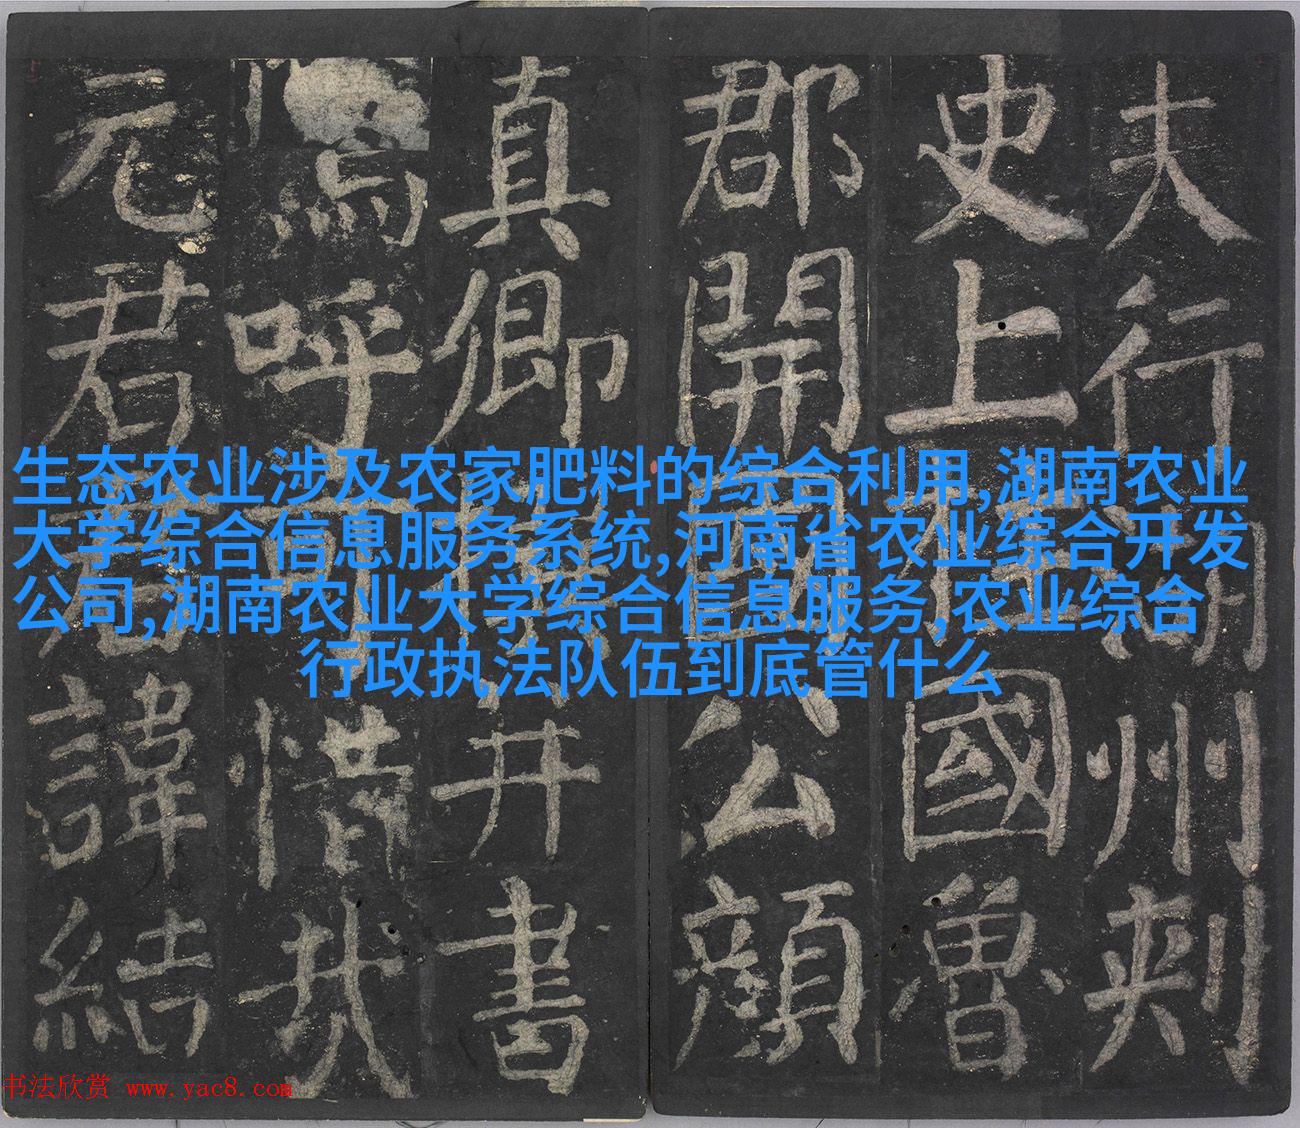 夫行湖州刺
史上柱國魯
郡開國公顏
真卿撰并書
嗚呼可惜哉
元君君諱結
生态农业涉及农家肥料的综合利用,湖南农业
大学综合信息服务系统,河南省农业综合开发
公司,湖南农业大学综合信息服务,农业综合
行政执法队伍到底管什么
书法欣赏 www.yac8.com